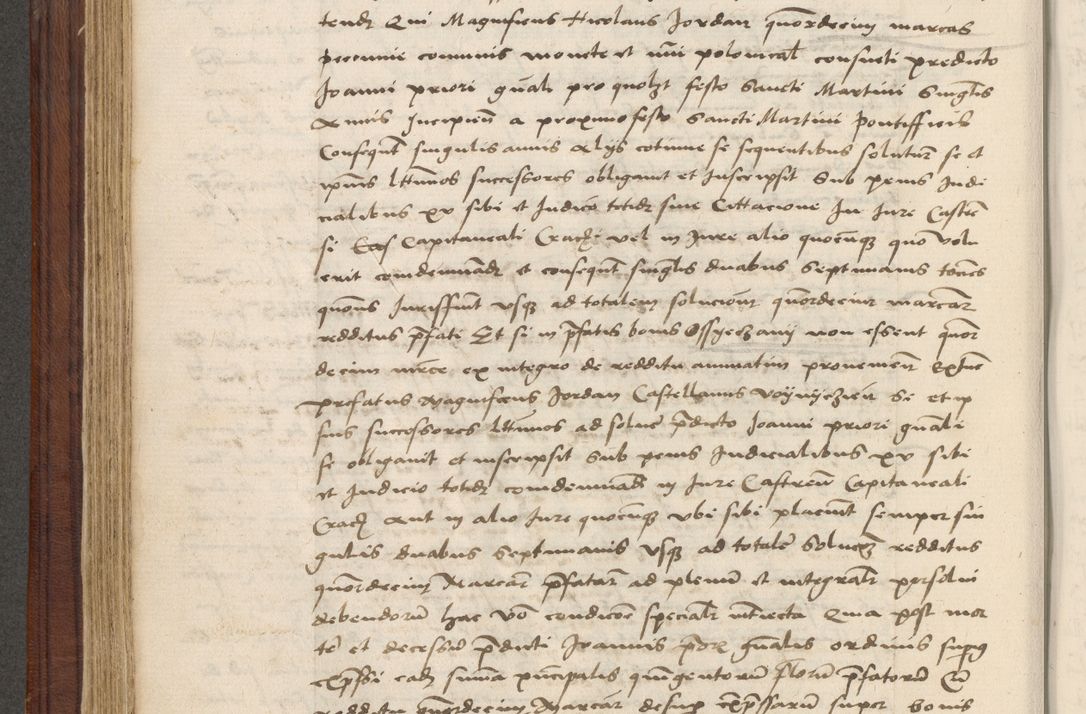 tendꝫ Qui Magnificus Nicolaus Jordan quordecim marcas
peccunie comunis monete et nūi polonical consueti predicto
Joanni priori gnali pro quolzt festo Sancti Martini Singlis
Annis Incipien a proximo festo Sancti Martini Pontifficis
Consequēt singulis annis Alijs cotinue se sequentibus soluturꝫ se et
ipius lttimos successores obligavit et Inscripsit Sub penis Judi
cialibus xv sibi et Judicio totidꝫ sine Cittacione In Jure Castreñ
si Capitaneali Cracħ vel in Jure alio quocunqꝫ quo Volu
erit condemnandꝫ et consequēt singlis duabus Septimanis tocies
quociens Jurissunt usqꝫ ad totalem solucionē quordecim marcarꝫ
redditus pfati Et si in pfatis bonis Ossyeczany non essent quor
decim mrce ex integro de redditu annuatim provenient extūc
prefatus Magnificus Jordan Castellanus Voynyczien Se et ip
sius successores lttimos ad soluē pdicto Joanni priori gnali
se obligavit et inscripsit Sub penis Judicialibus xv sibi
et Judicio totidꝫ condemnandꝫ in Jure Castrenū Capitaneali
Cracħ Aut in alio Jure quocunqꝫ ubi sibi placuīt semper sin
gulis duabus Septimanis usqꝫ ad totalē Solucꝫ redditus
quordecim Marcarꝫ pfatarꝫ ad plenū et integralꝫ persolui
debendorū hac vō condicōe specialꝫ interiecta Qua post mor
tē et decessū pdicti Joannis prioꝫ gnalis ordinis superiꝰ
expssi eadꝫ suma principalis quingentorū florū pfatorū Cū
redditu quordecim Marcarꝫ desup expssarū super bonis